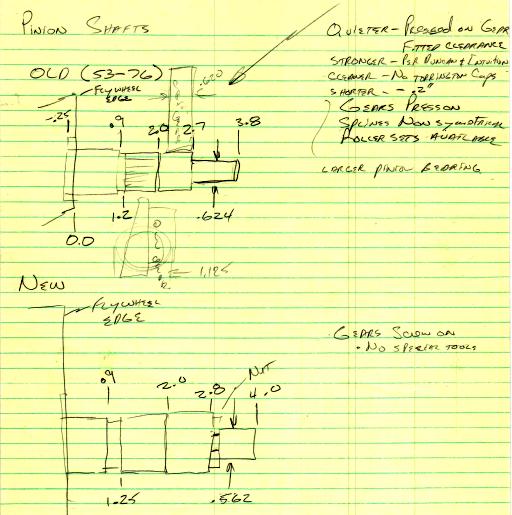 PINION SHAFTS
OLD (53-76)
FLYWHEEL
EDGE
.620
-.25
.9
2.0
2.7
3.8
0.0
1.2
.624
1.125
QUIETER - PRESSED ON GEAR
FITTED CLEARANCE
STRONGER - PER DUNCAN & INTUITION
CLEANER - NO TORRINGTON CAPS
SHORTER - ~.2"
GEARS PRESS ON
SPLINES NON SYMETRICAL
ROLLER SETS AVAILABLE
LARGER PINION BEARING
NEW
FLYWHEEL
EDGE
GEARS SCREW ON
• NO SPECIAL TOOLS
.9
2.0
2.8
NUT
4.0
1.25
.562